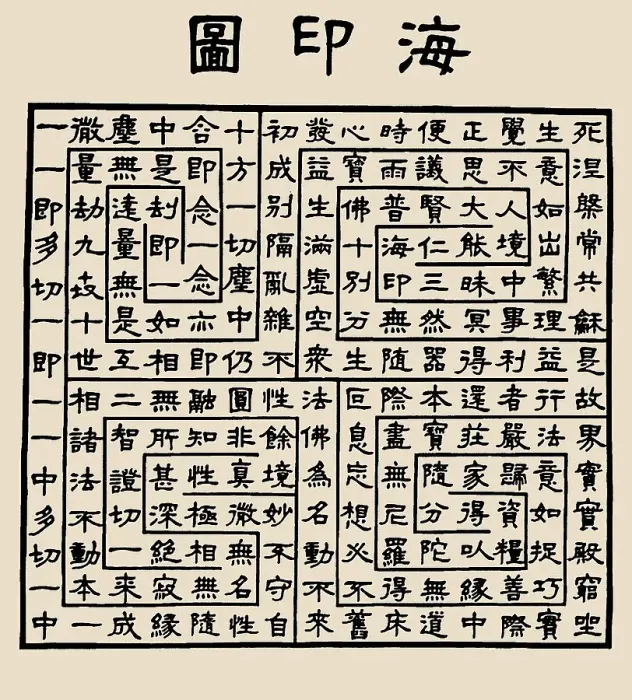 海印圖
死涅槃常共穌是故界實實殿窮坐
生意如出繁理益行法意如捉巧實
覺不人境中事利者嚴歸資糧善際
正思大能昧冥得還莊家得以緣中
便議賢仁三然器本寶隨分陀無道
時雨普海印無隨際盡無尼羅得床
心寶佛十別分生叵息忘想必不舊
發益生滿虛空眾法佛為名動不來
初成別隔亂雜不性餘境妙不守自
十方一切塵中仍圓非真微無名性
含即念一念亦即融知性極相無隨
中是刦即一如相無所甚深絕寂緣
塵無達量無是互二智證切一來成
微量劫九世十世相諸法不動本一
一一即多切一即一一中多切一中